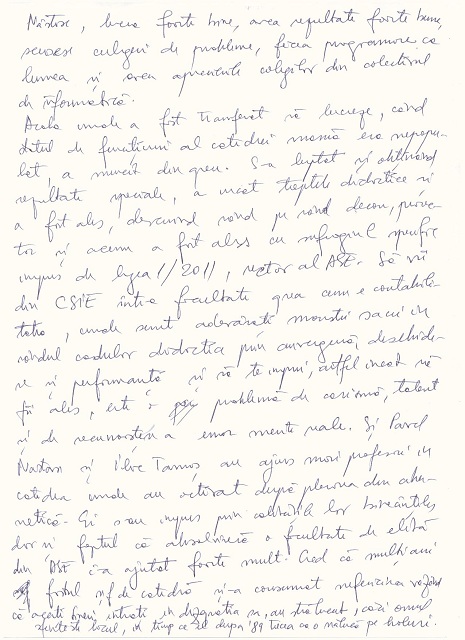 Năstase, lucra foarte bine, avea rezultate foarte bune,
scosese culegeri de probleme, făcea programare ca
lumea și avea aprecierile colegilor din colectivul
de informatică.
Acolo unde a fost transferat să lucreze, când
statul de funcțiuni al catedrei era
a muncit din greu. S-a luptat și obținând
rezultate speciale, a urcat treptele didactice și
a fost ales, devenind rând pe rând decan,
și acum a fost ales cu sufragiul
impus de legea 1/2011, rector al ASE. Să vii
din CSIE într-o facultate grea cum e
unde sunt adevărați monștri sacri în
rândul cadrelor didactice prin anvergură, deschide-
re și performanță și să te impui, astfel încât să
fii ales, este o problemă de carismă, talent
și de recunoaștere a unor merite reale. Și Pavel
Năstase și Ilie Tamaș au ajuns mari profesori în
catedra unde au activat după plecarea din
Ei s-au impus prin calitățile lor
și faptul că absolviseră o facultate de elită
din ASE i-a ajutat foarte mult. Cred că mulți ani
fostul șef de catedră și-a consumat
că acești tineri intrați în dizgrația sa, au strălucit, căci omul
sfințește locul, în timp ce el după '89 trecea ca o nălucă pe holuri.